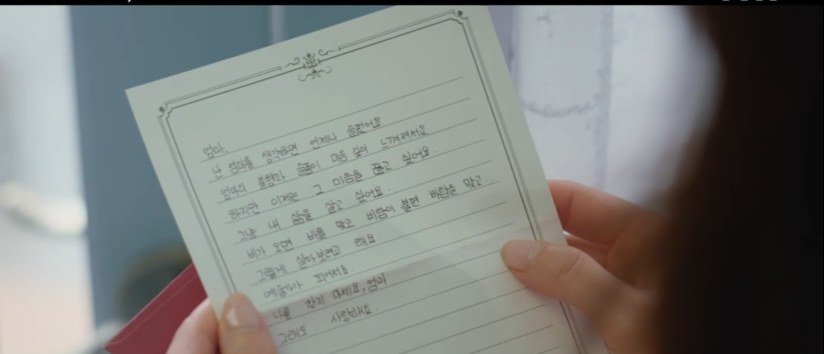 엄마,
난 엄마를 생각하면 언제나 슬펐어요
엄마의 불행과 슬픔이 마음 깊이 느껴져서요
하지만 이제는 그 마음을 끊고 싶어요.
그냥 내 삶을 살고 싶어요.
비가 오면 비를 맞고 바람이 불면 바람을 맞고...
그렇게 살아보려고 해요
예술가가 되어서요
나를 찾지 마세요, 엄마
그래도 사랑해요